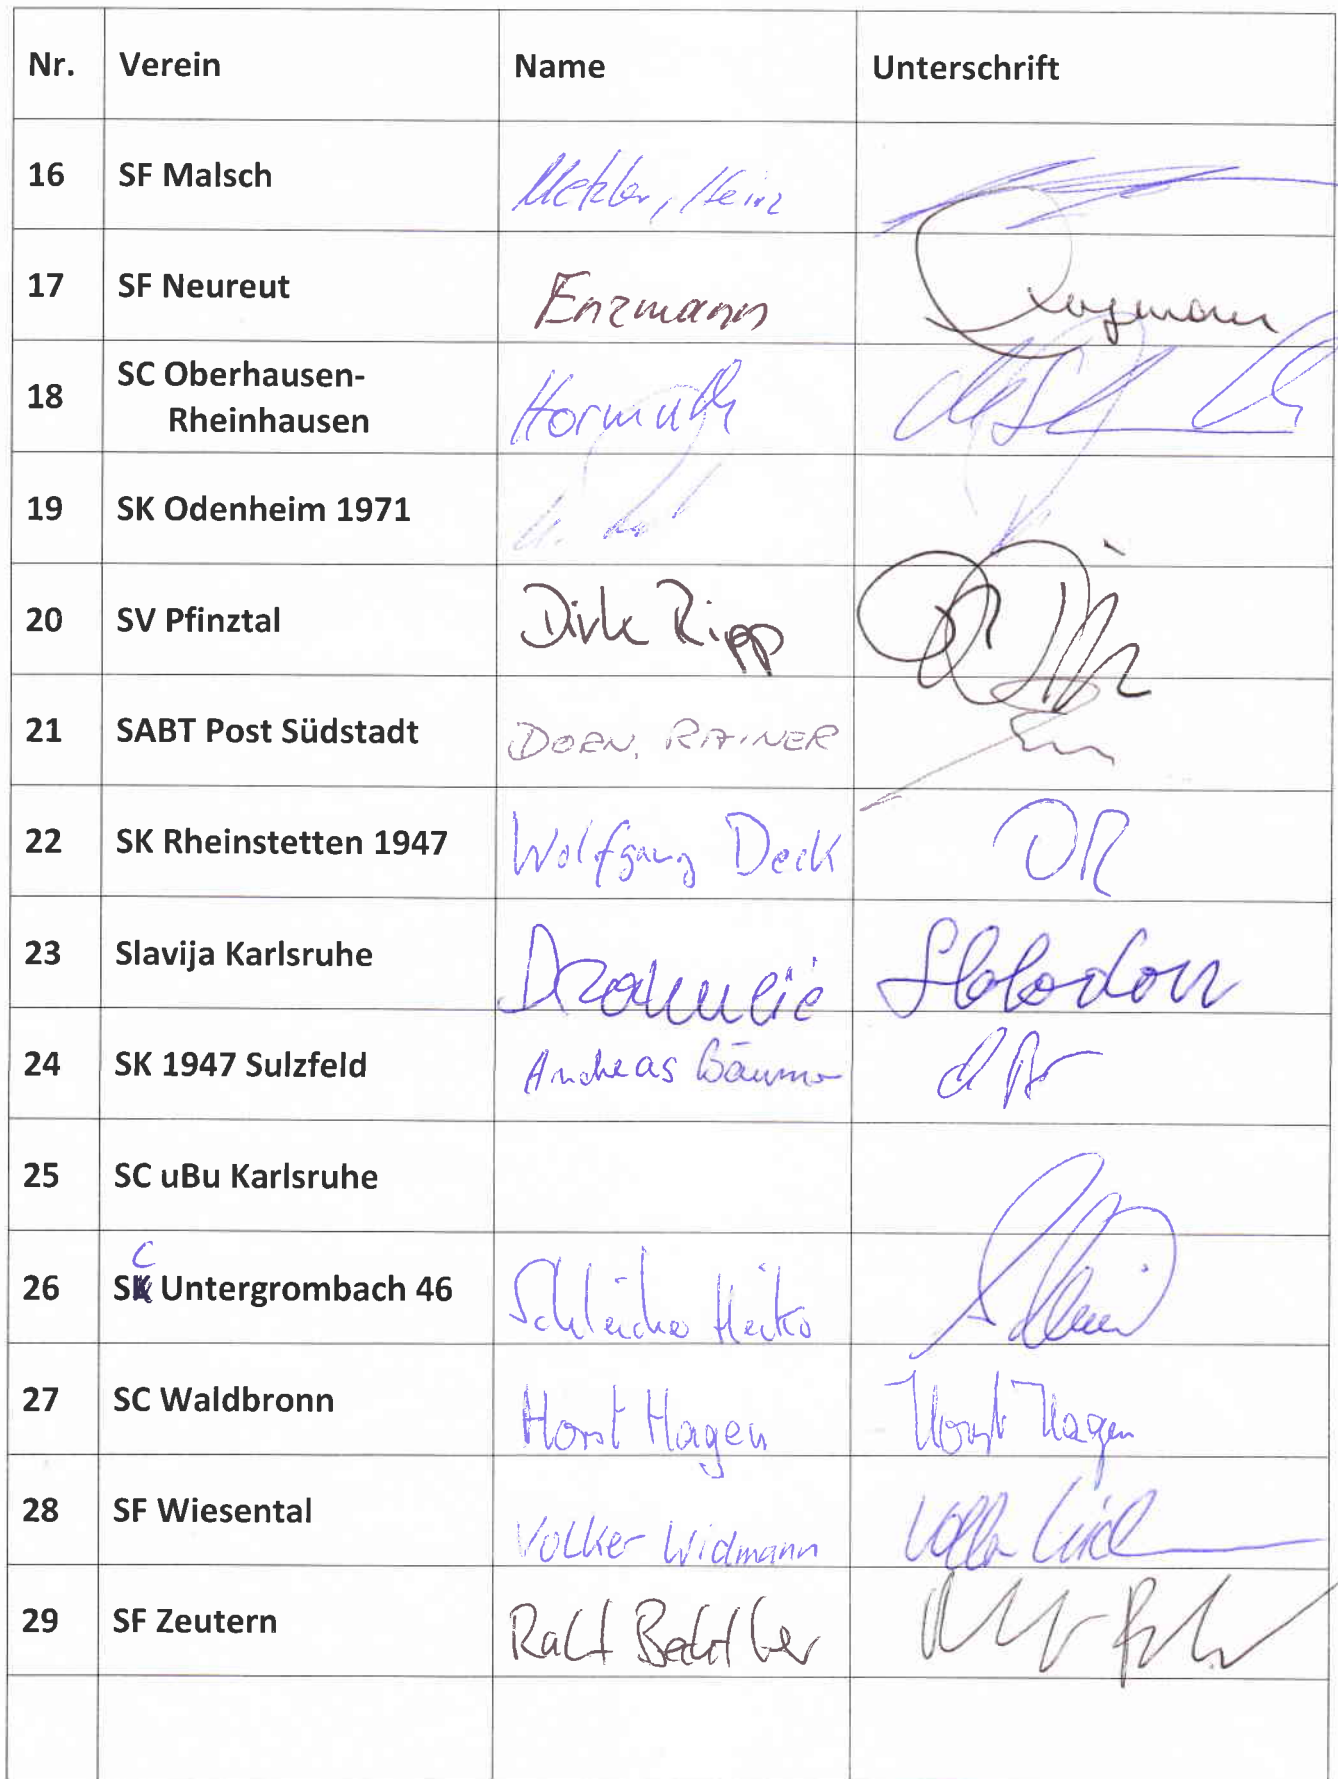 Nr. Verein Name Unterschrift
16 SF Malsch Metzler, Heinz
17 SF Neureut Enzmann
18 SC Oberhausen-
Rheinhausen Hormuth
19 SK Odenheim 1971
20 SV Pfinztal Dirk Ripp
21 SABT Post Südstadt DORN, RAINER
22 SK Rheinstetten 1947 Wolfgang Deck
23 Slavija Karlsruhe Slobodan
24 SK 1947 Sulzfeld Andreas
25 SC uBu Karlsruhe
26 SC Untergrombach 46 Schleicher Heiko
27 SC Waldbronn Horst Hagen Horst Hagen
28 SF Wiesental Volker Widmann
29 SF Zeutern Ralf